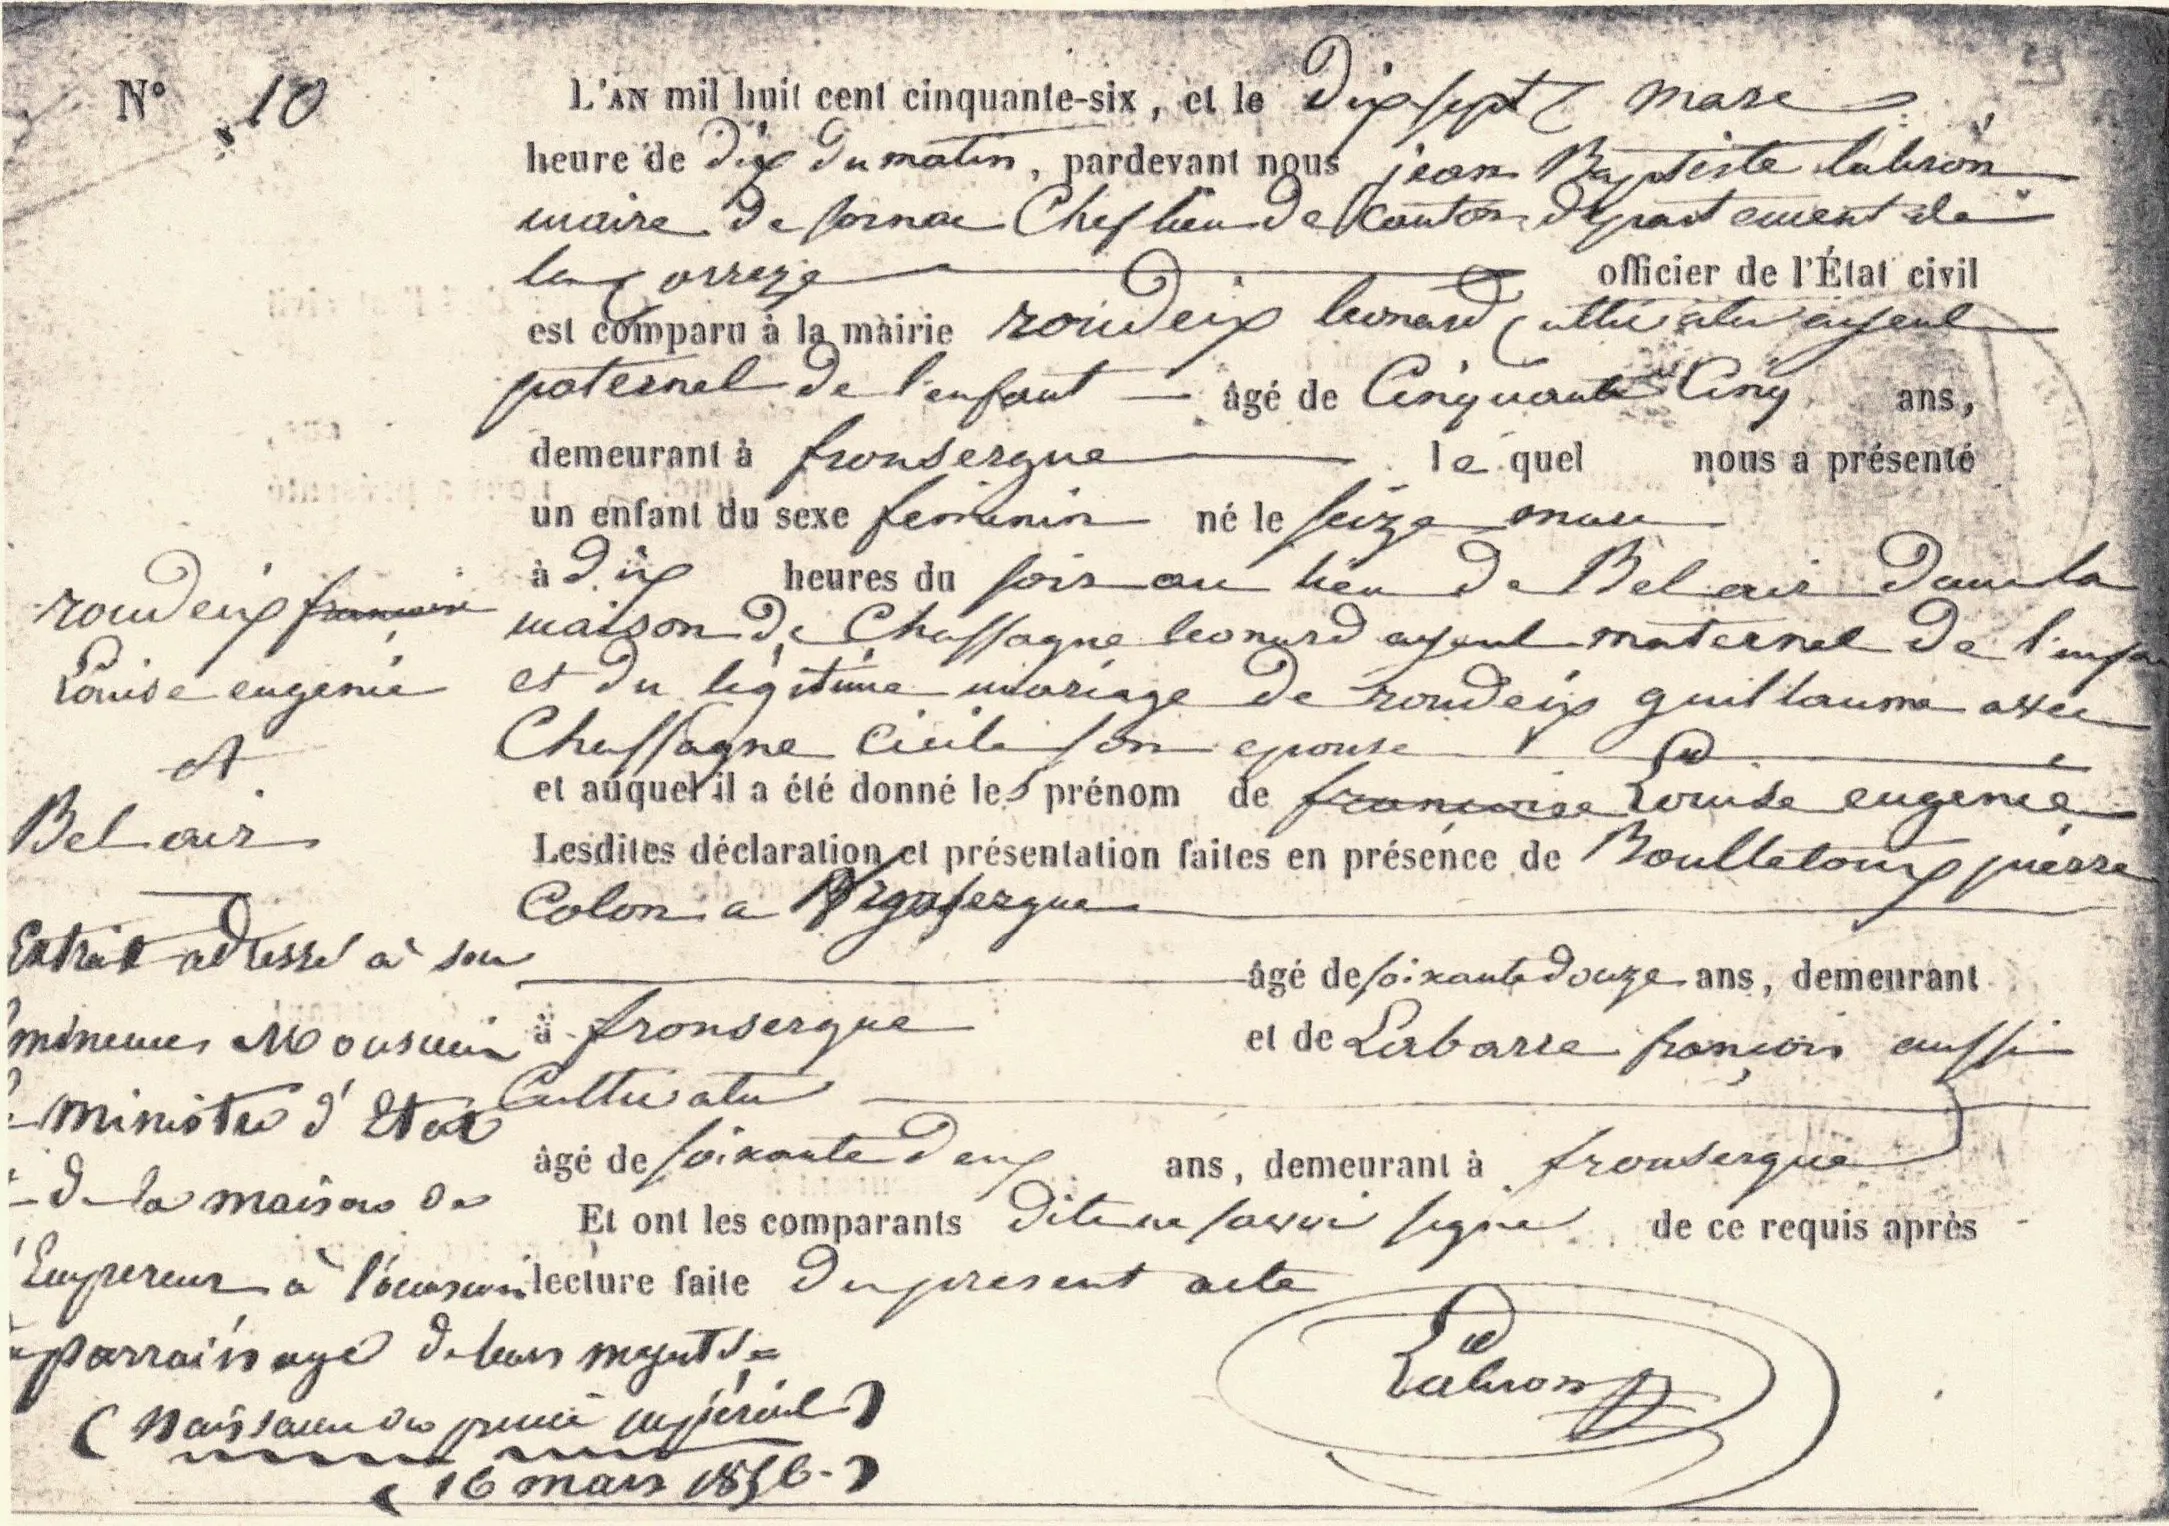 N° 10
L'AN mil huit cent cinquante-six, et le dix sept mars
heure de dix du matin, pardevant nous jean Baptiste labron
maire de sornac Chef lieu de Canton département de
la Correze officier de l'État civil
est comparu à la mairie roudeix leonard Cultivateur ayeul
paternel de l'enfant — âgé de Cinquante Cinq ans,
demeurant à fronsergue le quel nous a présenté
un enfant du sexe feminin né le seize mars
à dix heures du soir au lieu de Bel air dans la
maison de Chassagne leonard ayeul maternel de l'enfa
et du légitime mariage de roudeix guillaume avec
Chassagne Cicile son epouse
et auquel il a été donné les prénom de francoise Louise eugenie
Lesdites déclaration et présentation faites en présence de Boulletoux pierre
Colon a
âgé de soixante douze ans, demeurant
à fronsergue et de Labarre françois aussi
Cultivateur
âgé de soixante deux ans, demeurant à fronsergue
Et ont les comparants dit ne savoir signer de ce requis après
lecture faite du present acte
Labron
roudeix francoise
Louise eugenie
et
Bel air
Extrait adressé à son
minence Monsieur
ministre d'Etat
de la maison de
l'Empereur à l'occasion
parrainage de leurs majestés
(Naissance du prince impérial)
(16 mars 1856.)